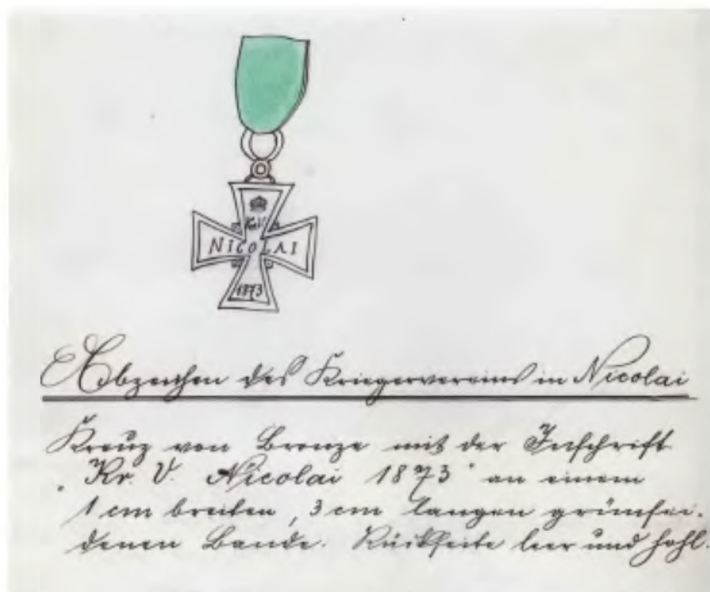 Kr.V.
NICOLAI
1873
Abzeichen des Kriegervereins in Nicolai
Kreuz von Bronze mit der Inschrift
"Kr. V. Nicolai 1873" an einem
1 cm breiten, 3 cm langen grünsei-
denen Bande. Rückseite leer und hohl.